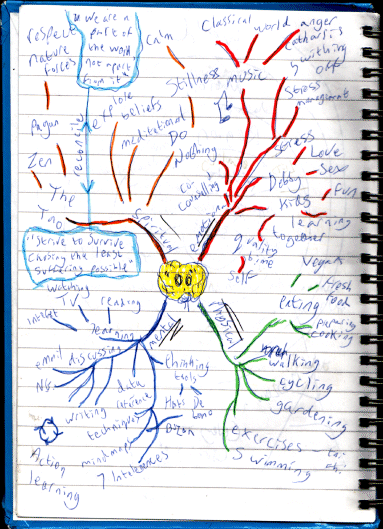 "We are a
part of
the world
not apart
from it"
respect
nature
forces
Pagan
Zen
The
Tao
reconcile
explore
beliefs
Calm
meditational
Do
Nothing
Stillness
spiritual
"Strive to Survive
causing the least
suffering possible"
Classical
world
anger
catharsis
switching
off
music
stress
management
stress
Love
Sex
Debby
Fun
Kids
learning
together
co-
counselling
emotional
quality
time
Self
watching
TV
reading
internet
learning
email
discussing
mental
NG
writing
data
techniques
thinking
tools
Hats De
Bono
mindmaps
7 Intelligences
Action
learning
Physical
Vegan
Fresh
food
eating
cooking
walking
cycling
gardening
exercises - tai
chi
Swimming